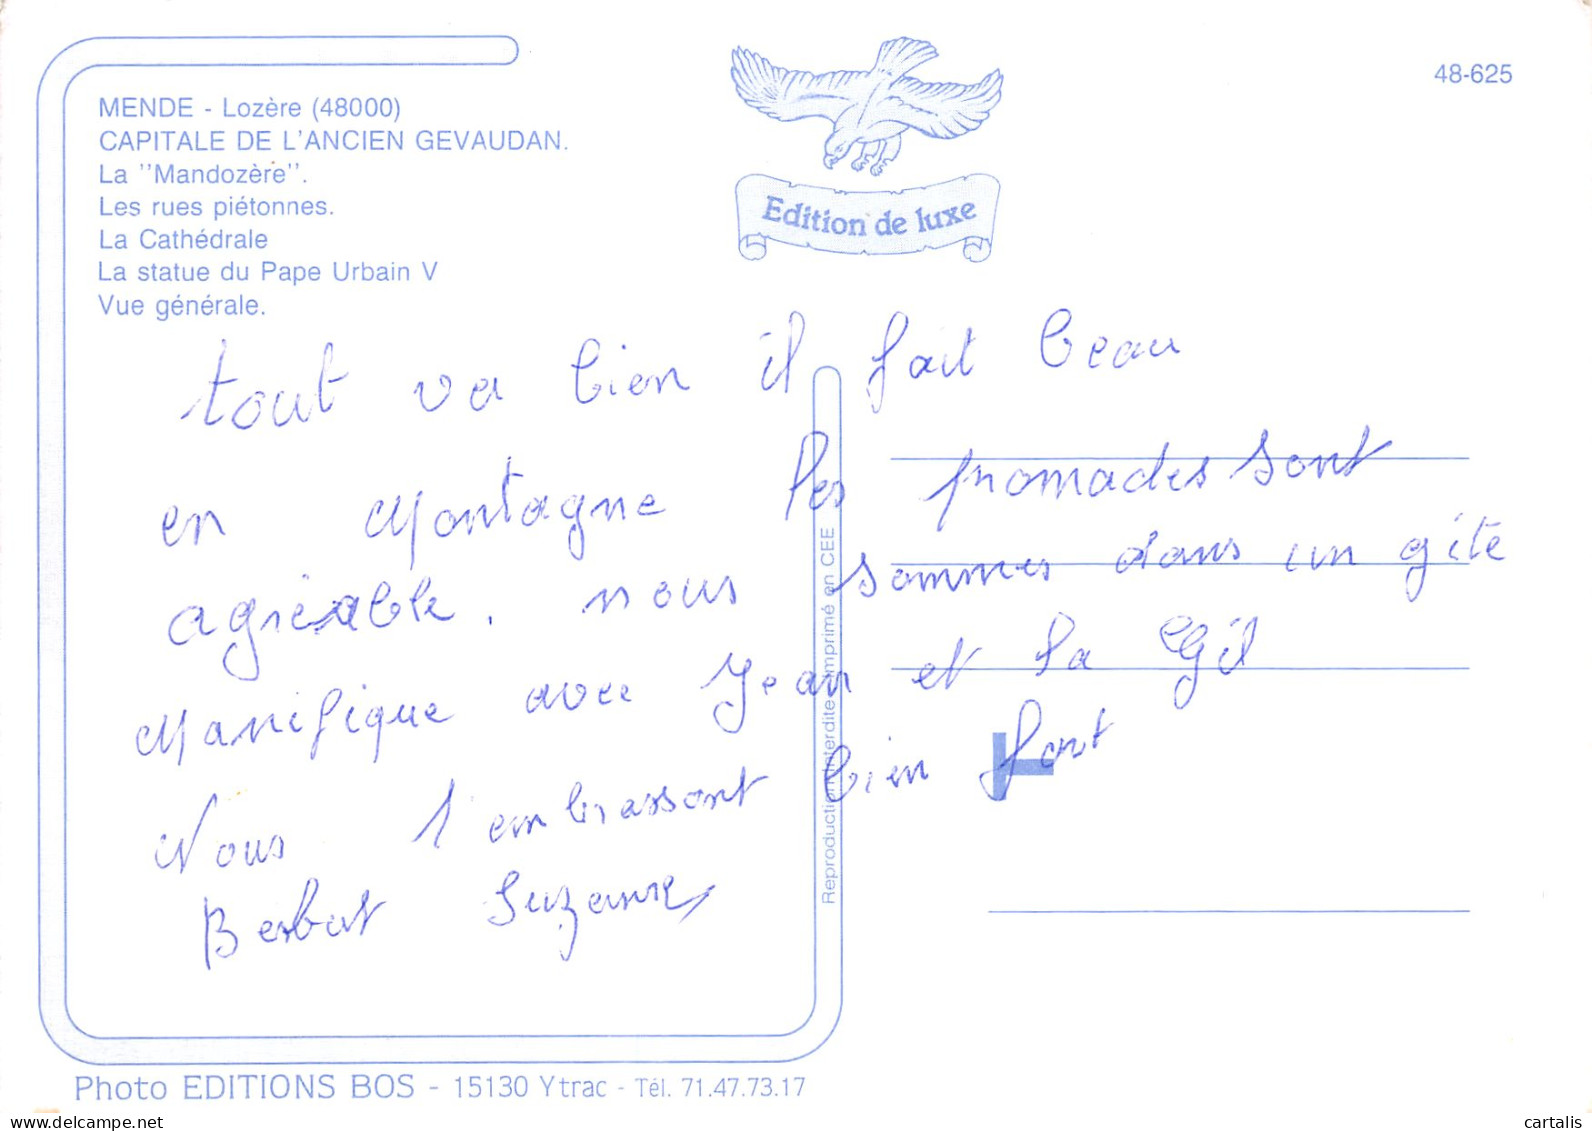 48-625
MENDE - Lozère (48000)
CAPITALE DE L'ANCIEN GEVAUDAN.
La "Mandozère".
Les rues piétonnes.
La Cathédrale
La statue du Pape Urbain V
Vue générale.
Edition de luxe
tout va bien il fait beau
en Montagne les promades sont
agréable. nous sommes dans un gite
Manifique avec Jean et la Gil
Nous l'embrassont bien fort
Suzanne
Reproduction interdite imprimé en CEE
Photo EDITIONS BOS - 15130 Ytrac - Tél. 71.47.73.17
www.delcampe.net
cartalis